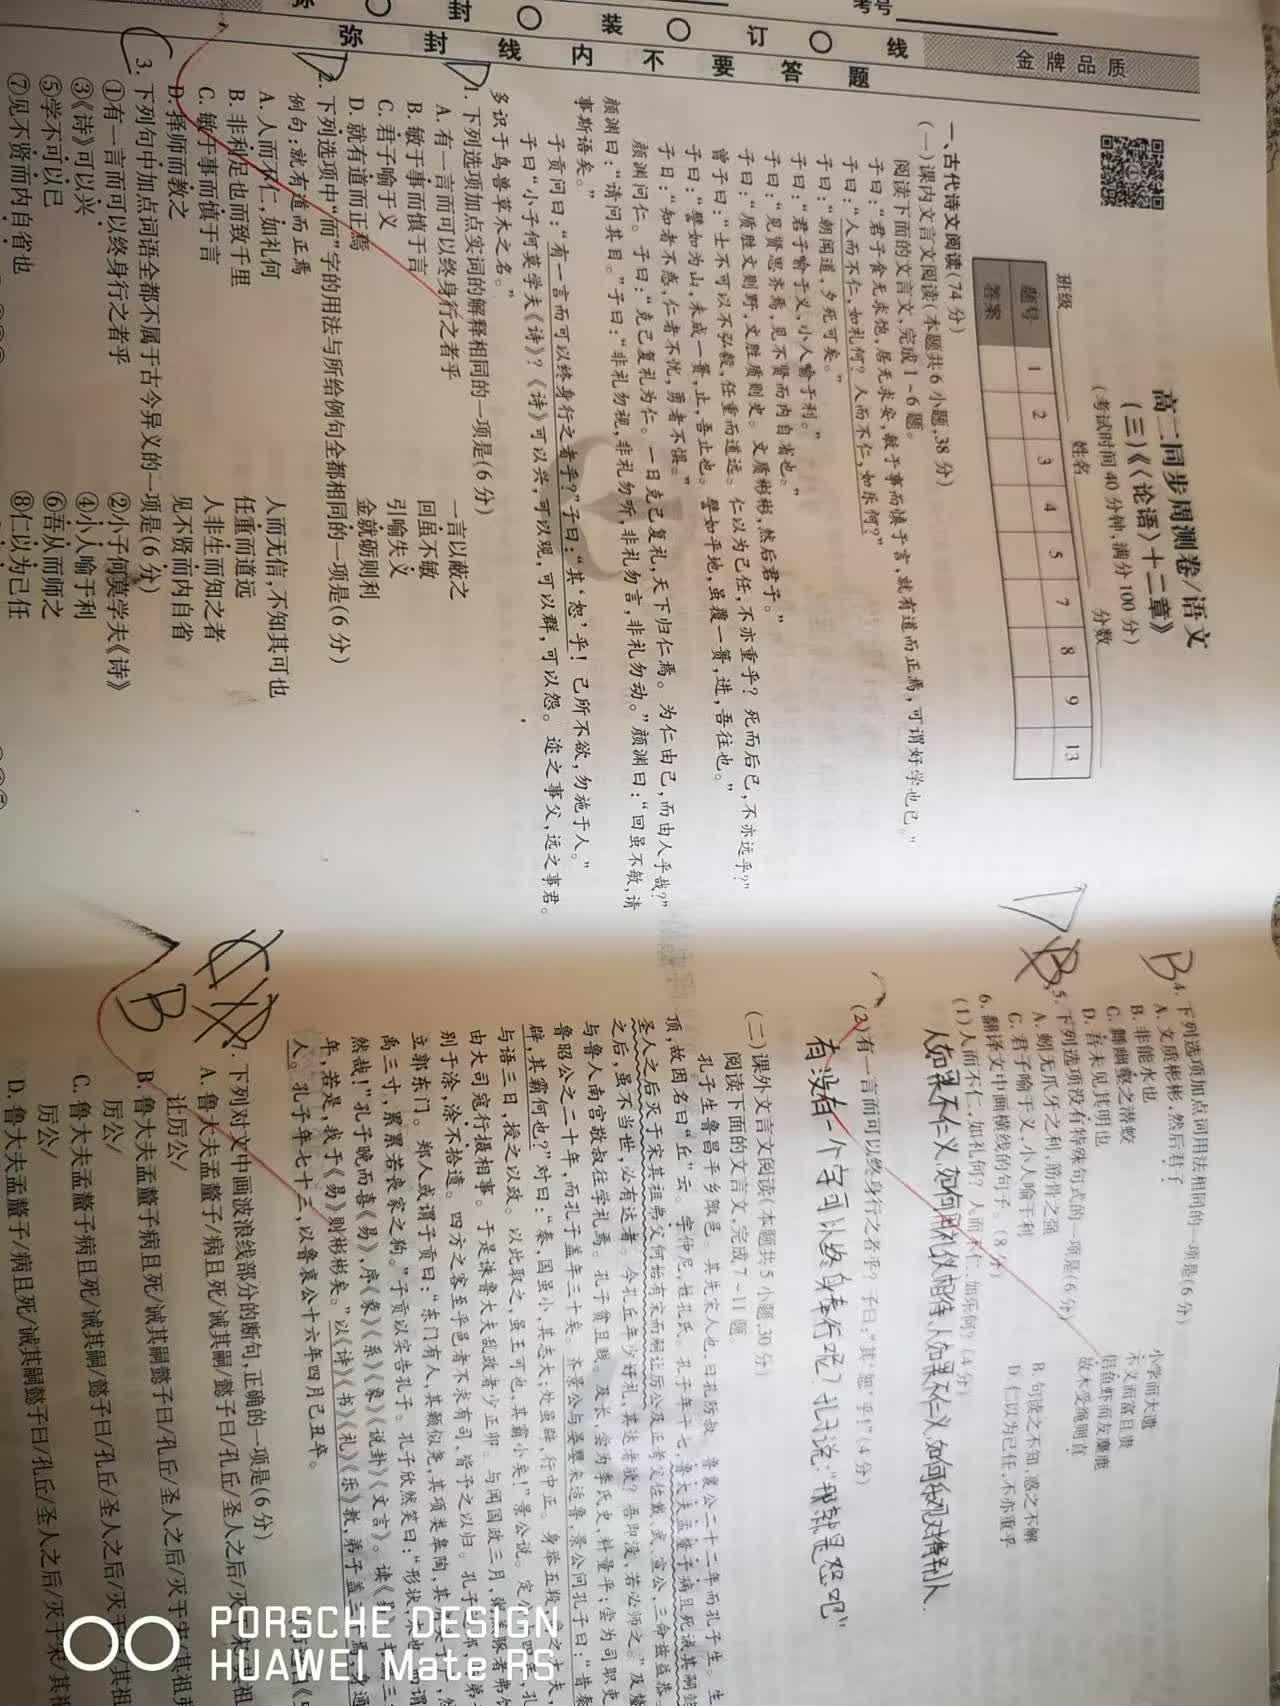 考号
封〇装〇订〇线
弥封线内不要答题
金牌品质
高二同步周测卷/语文
(三)《〈论语〉十二章》
(考试时间40分钟,满分100分)
班级 姓名 分数
题号 1 2 3 4 5 7 8 9 13
答案
一、古代诗文阅读(74分)
(一)课内文言文阅读(本题共6小题,38分)
阅读下面的文言文,完成1~6题。
子曰:“君子食无求饱,居无求安,敏于事而慎于言,就有道而正焉,可谓好学也已。”
子曰:“人而不仁,如礼何?人而不仁,如乐何?”
子曰:“朝闻道,夕死可矣。”
子曰:“君子喻于义,小人喻于利。”
子曰:“见贤思齐焉,见不贤而内自省也。”
子曰:“质胜文则野,文胜质则史。文质彬彬,然后君子。”
曾子曰:“士不可以不弘毅,任重而道远。仁以为己任,不亦重乎?死而后已,不亦远乎?”
子曰:“譬如为山,未成一篑,止,吾止也。譬如平地,虽覆一篑,进,吾往也。”
子曰:“知者不惑,仁者不忧,勇者不惧。”
颜渊问仁。子曰:“克己复礼为仁。一日克己复礼,天下归仁焉。为仁由己,而由人乎哉?”
颜渊曰:“请问其目。”子曰:“非礼勿视,非礼勿听,非礼勿言,非礼勿动。”颜渊曰:“回虽不敏,请
事斯语矣。”
子贡问曰:“有一言而可以终身行之者乎?”子曰:“其‘恕’乎!己所不欲,勿施于人。”
子曰:“小子何莫学夫《诗》?《诗》可以兴,可以观,可以群,可以怨。迩之事父,远之事君。
多识于鸟兽草木之名。”
1. 下列选项加点实词的解释相同的一项是(6分)
A. 有一言而可以终身行之者乎 一言以蔽之
B. 敏于事而慎于言 回虽不敏
C. 君子喻于义 引喻失义
D. 就有道而正焉 金就砺则利
2. 下列选项中“而”字的用法与所给例句全都相同的一项是(6分)
例句:就有道而正焉
A. 人而不仁,如礼何 人而无信,不知其可也
B. 非利足也而致千里 任重而道远
C. 敏于事而慎于言 人非生而知之者
D. 择师而教之 见不贤而内自省
3. 下列句中加点词语全都不属于古今异义的一项是(6分)
①有一言而可以终身行之者乎 ②小子何莫学夫《诗》
③《诗》可以兴 ④小人喻于利
⑤学不可以已 ⑥吾从而师之
⑦见不贤而内自省也 ⑧仁以为己任
B
4. 下列选项加点词用法相同的一项是(6分)
A. 文质彬彬,然后君子 小学而大遗
B. 非能水也 不义而富且贵
C. 舞幽壑之潜蛟 侣鱼虾而友麋鹿
D. 吾未见其明也 故木受绳则直
B
5. 下列选项没有特殊句式的一项是(6分)
A. 蚓无爪牙之利,筋骨之强 B. 句读之不知,惑之不解
C. 君子喻于义,小人喻于利 D. 仁以为己任,不亦重乎
6. 翻译文中画横线的句子。(8分)
(1)人而不仁,如礼何?人而不仁,如乐何?(4分)
(2)有一言而可以终身行之者乎?子曰:“其‘恕’乎!”(4分)
有没有一个字可以终身奉行呢?孔子说:“那就是恕吧”
(二)课外文言文阅读(本题共5小题,30分)
阅读下面的文言文,完成7~11题。
孔子生鲁昌平乡陬邑。其先宋人也,曰孔防叔。鲁襄公二十二年而孔子生。生
顶,故因名曰“丘”云。字仲尼,姓孔氏。孔子年十七,鲁大夫孟釐子病且死诫其嗣
圣人之后灭于宋其祖弗父何始有宋而嗣让厉公及正考父佐戴、武、宣公,三命兹益恭
之后,虽不当世,必有达者。今孔丘年少好礼,其达者欤?吾即没,若必师之。”及釐
与鲁人南宫敬叔往学礼焉。孔子贫且贱。及长,尝为季氏史,料量平;尝为司职吏
鲁昭公之二十年,而孔子盖年三十矣。齐景公与晏婴来适鲁,景公问孔子曰:“昔秦
辟,其霸何也?”对曰:“秦,国虽小,其志大;处虽辟,行中正。身举五羖
与语三日,授之以政。以此取之,虽王可也,其霸小矣!”景公说。定公
由大司寇行摄相事。于是诛鲁大夫乱政者少正卯。与闻国政三月,
别于涂,涂不拾遗。四方之客至乎邑者不求有司,皆予之以归。
立郭东门。郑人或谓子贡曰:“东门有人,其颡似尧,其项类皋陶,其
禹三寸,累累若丧家之狗。”子贡以实告孔子。孔子欣然笑曰:“形状,
然哉!”孔子晚而喜《易》,序《彖》《系》《象》《说卦》《文言》。读《易》,韦编三
年,若是,我于《易》则彬彬矣。”以《诗》《书》《礼》《乐》教,弟子盖三
人。孔子年七十三,以鲁哀公十六年四月己丑卒。
B
7. 下列对文中画波浪线部分的断句,正确的一项是(6分)
A. 鲁大夫孟釐子/病且死/诫其嗣/懿子曰/孔丘/圣人之后/灭于宋/其祖
让厉公/
B. 鲁大夫孟釐子病且死/诫其嗣懿子曰/孔丘/圣人之后/灭于宋/其祖
厉公/
C. 鲁大夫孟釐子病且死/诫其嗣/懿子曰/孔丘/圣人之后/灭于
厉公/
D. 鲁大夫孟釐子/病且死/诫其嗣懿子曰/孔丘/圣人之后/灭于宋/其祖
PORSCHE DESIGN
HUAWEI Mate RS